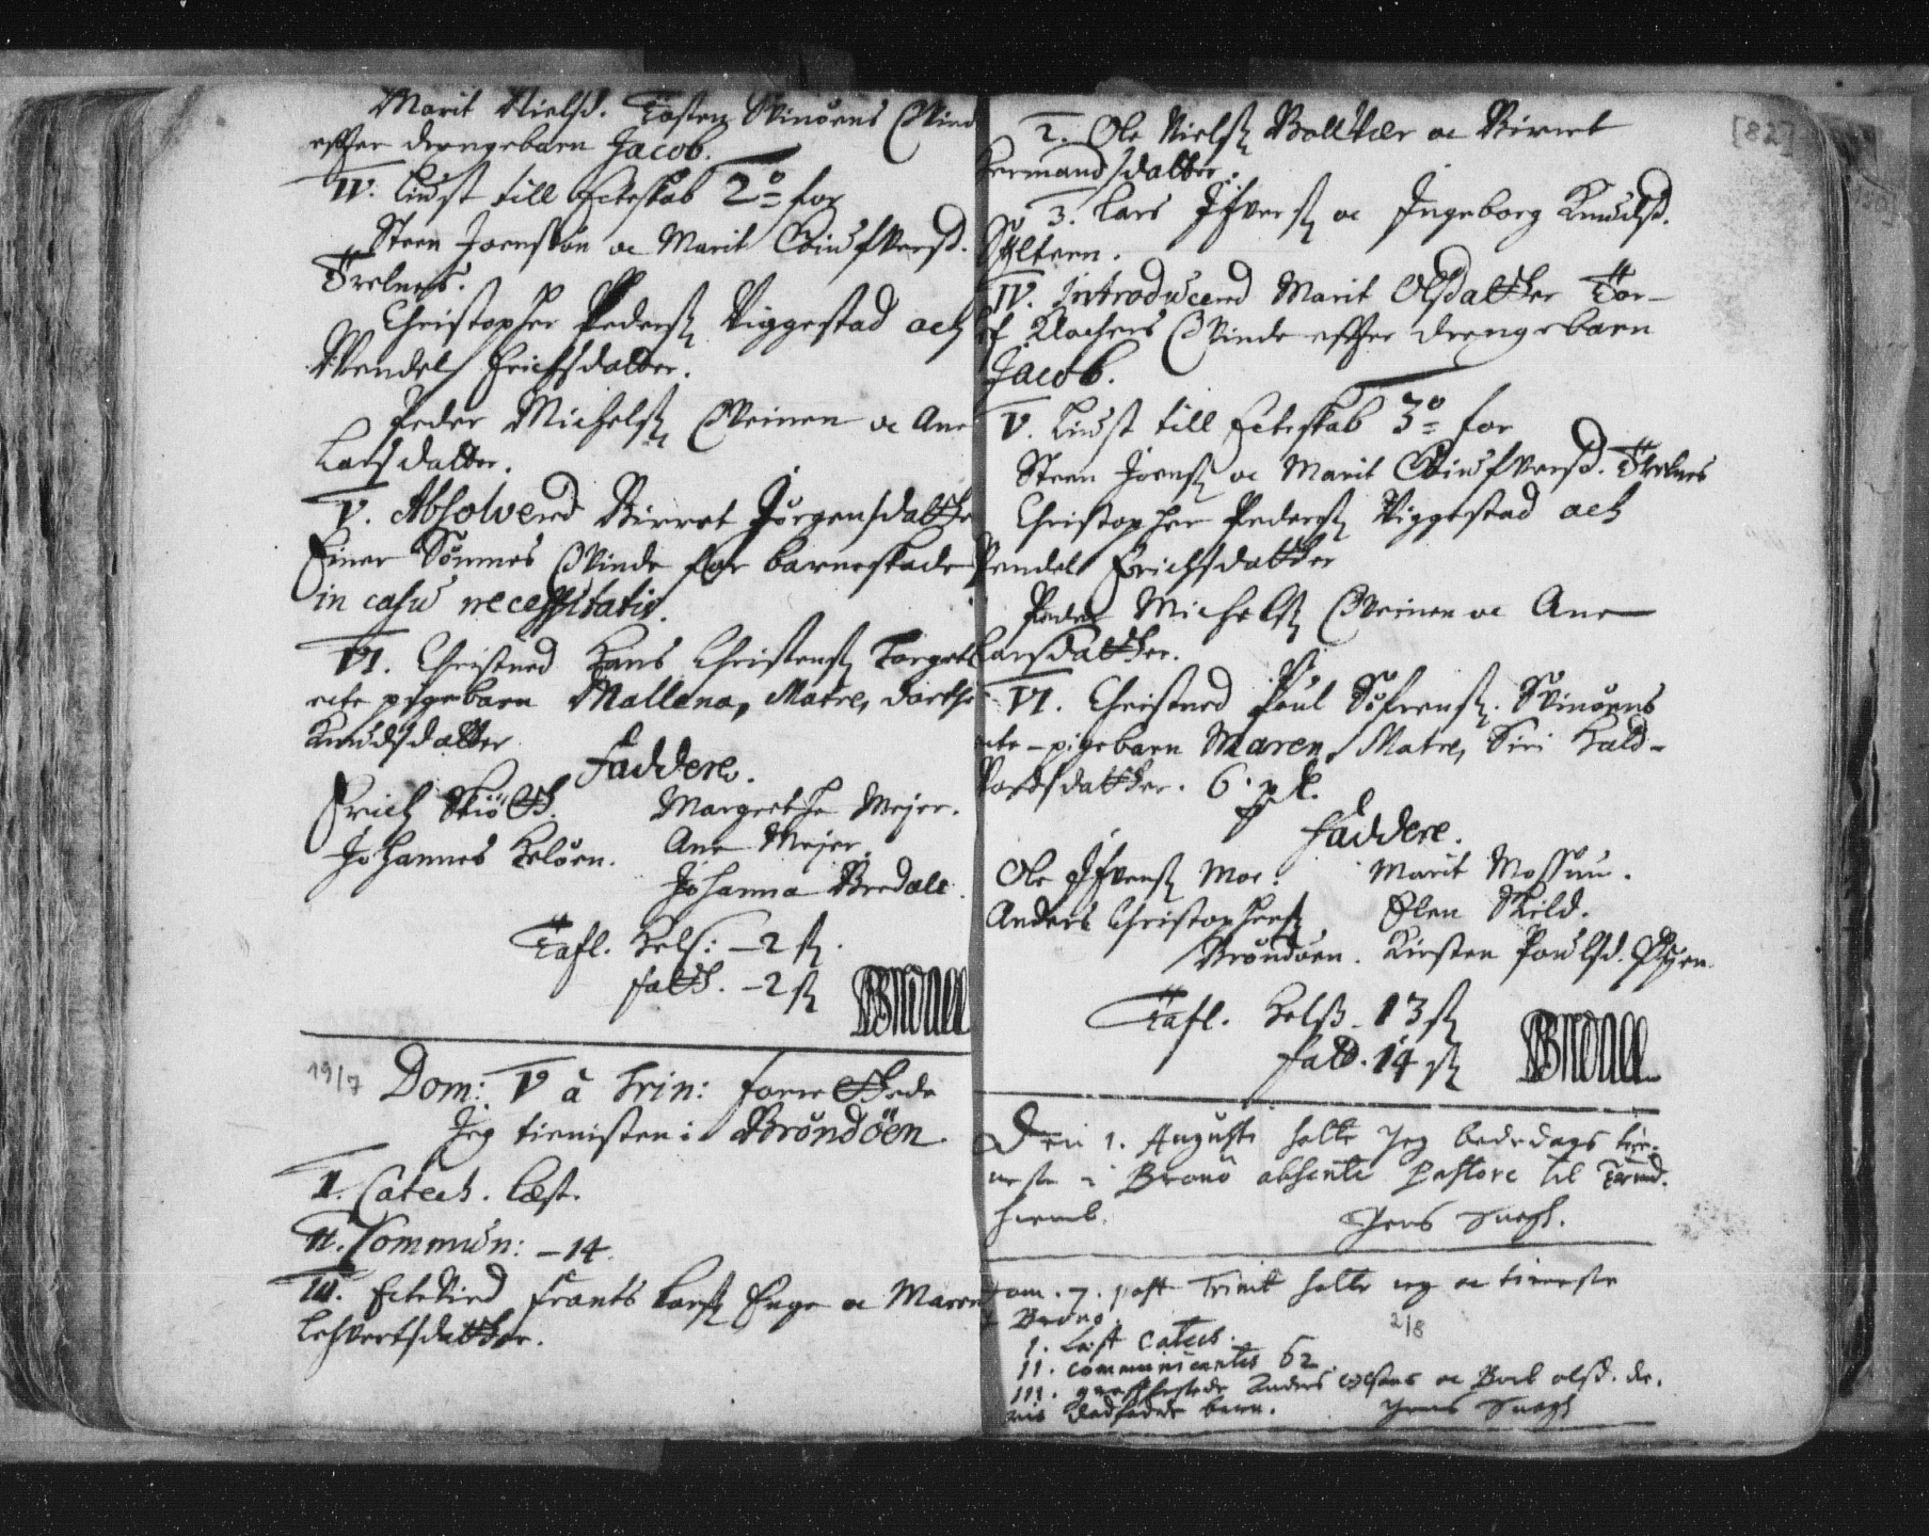 Marit Nielsd. Tosten Winøens Qvind
effter drengebarn Jacob.
IV. Liust till Ecteskab 2º for
Steen Joensøn oc Marit Ediusfversd.
Trelnes.
Christopher Peders. Viggestad och
Pendel Erichsdatter.
Peder Michels. Qveinen oc Ane
Larsdatter.
V. Absolverd Birret Jørgensdatthe
Einer Sømnes Qvinde for barneskade
in casu necessitatis.
VI. Christned Hans Christens. Torget
ecte pigebarn Mallena, Matre, Dorthe
Knudsdatter
Faddere.
Erich Skiøtt. Margrethe Mejer.
Johannes Heløen. Ane Mejer.
Johanna Bredale.
Tafl. Hels: – 2 ß.
Fatt. – 2 ß
19/7 Dom: V à trin: forrettede
Jeg tienisten i Brøndøen
I. Catech. læst.
II. Commun: – 14.
III. Ectevied Frants Lars. Enge oc Maren
Lehvertsdatter.
[82]
2. Ole Niels. Bolvær oc Birret
Hermandsdatter.
3. Lars Ifvers. oc Ingeborg Knudsd.
Syltern.
IV. Introducerd Marit Olsdatter Tor-
Qvinde effter drengebarn
Jacob.
V. Liust till Ecteskab 3º for
Steen Joens. oc Marit Ediusfversd. Trelnes
Christopher Peders. Viggestad och
Pendel Erichsdatter
Peder Michels. Qveinen oc Ane
Larsdatter.
VI. Christned Poul Søfrens. Winøens
ecte-pigebarn Maren, Matre, Siri Hald-
vordsdatter. 6. pk.
Faddere.
Ole Ifvens. Moe. Marit Mossum.
Anders Christophers. Elen Skild.
Brøndøen. Kirsten Poulsd.
Tafl. Hels. 13 ß
Fatt. 14 ß
Den 1. Augusti holte Jeg bededags tie-
neste i Brønø absente Pastore til Trund-
hiemb.
Jens
Dom. 7. post Trinit holte jeg oc tieneste
i Brønø. 2/8
I. Læst Catech.
II. communicantes 62
III. Anders Olsens oc Boel olsd. de-
ris dødfødde barn. Jens